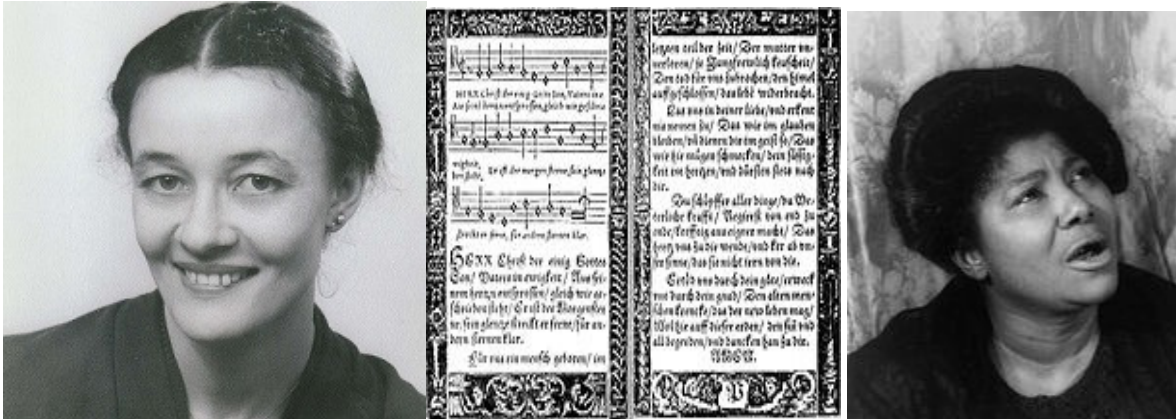 HERR Christ der einig Gotes Son, Vaters in e
wigkeit,
ben steht, Er ist der morgen sterne, sein glantze
streckt er ferne, für andern sternen klar.
HERR Christ der einig Gottes
Son/ Vaters in ewigkeit/ Aus sei-
nem hertzen entsprossen/ gleich wie ge-
schrieben steht/ Er ist der Morgenster-
ne, sein glentze streckt er ferne/ für an-
dern sternen klar.
Für uns ein mensch geboren/ im
letzten teil der zeit/ Der mutter un-
verloren/ jr Jungfrewlich keuscheit/
Den tod für uns zubrochen/ den himel
auffgeschlossen/ das lebē widerbracht.
Las uns in deiner liebe/ und erkent
nis nemen zu/ Das wir im glauben
bleiben/ uñ dienen dir im geist so/ Das
wir hie mügen schmecken/ dein süssig-
keit im hertzen/ und dürsten stets nach
dir.
Du schöpffer aller dinge/ du Ve-
terliche krafft/ Regierst von end zu
ende/ krefftig aus eigener macht/ Das
hertz uns zu dir wende/ und ker ab un-
ser sinne/ das sie nicht irren von dir.
Ertöd uns durch dein güte/ erweck
uns durch dein gnad/ Den alten men-
schen krencke/ das der new leben mag/
Wol hie auff dieser erden/ den sin und
all begirden/ und dancken han zu dir.
AMEN.